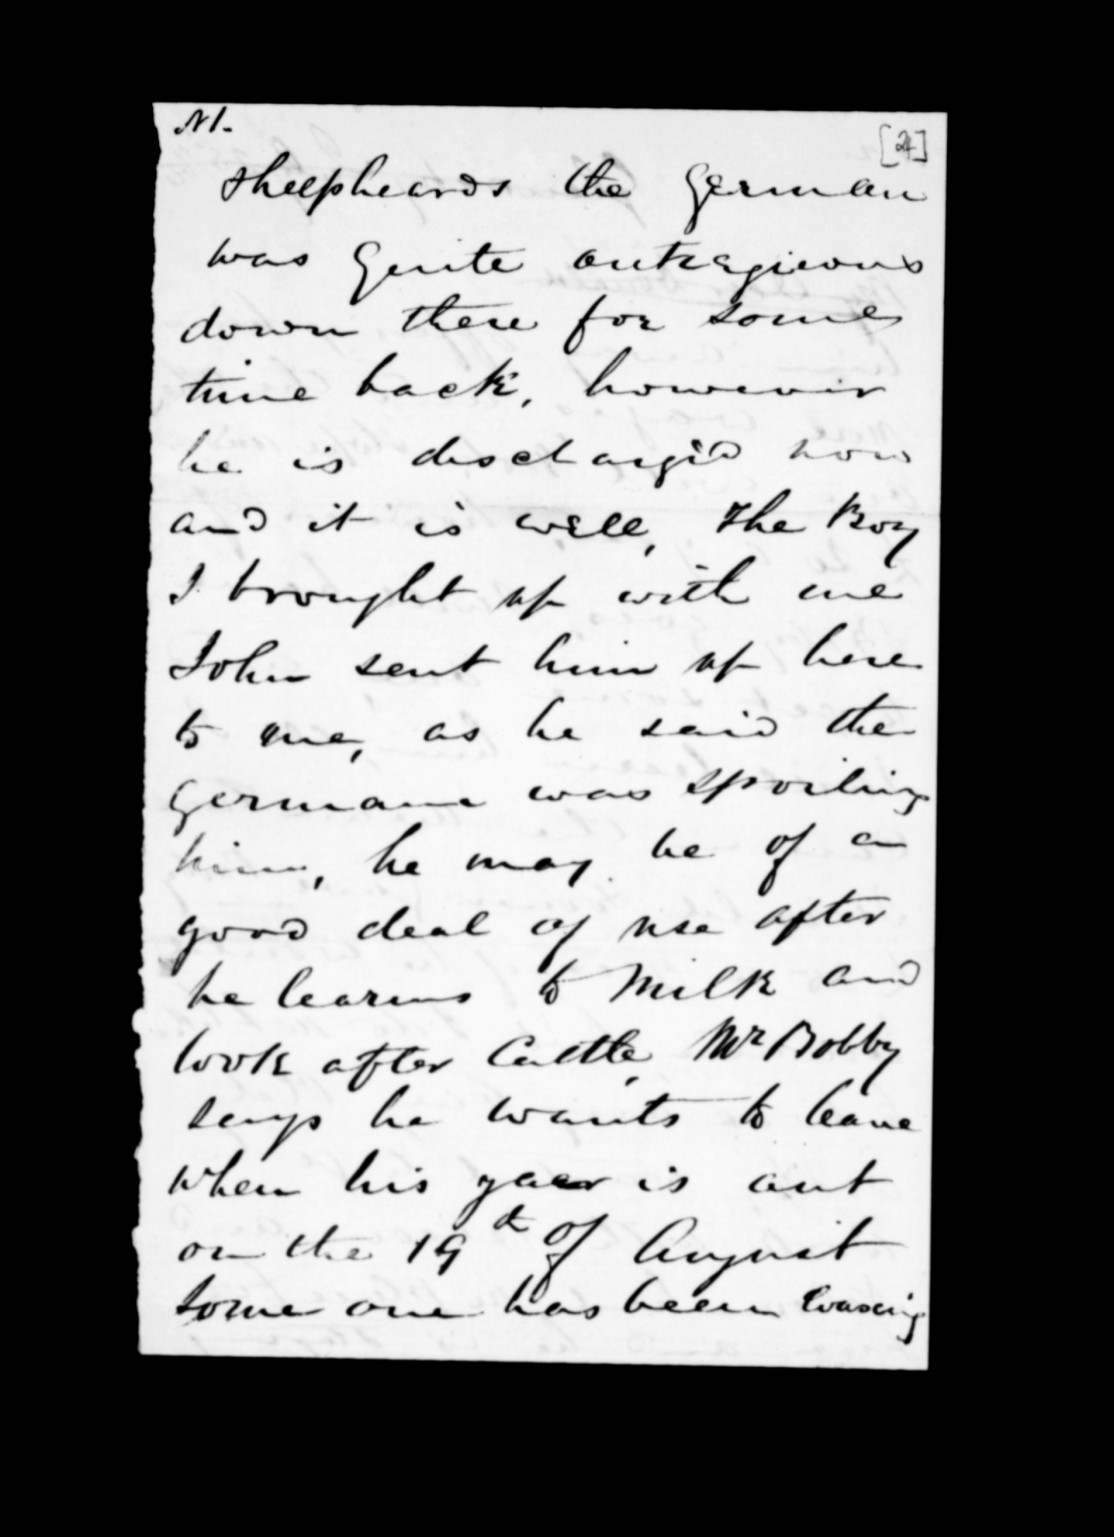 N1.
[2]
sheepheards the German
was Quite outragieous
down there for some
time back, however
he is dischargid now
and it is well, The Boy
I brought up with me
John sent him up here
to me, as he said the
Germane was spoiling
him, he may be of a
good deal of use after
he learns to Milk and
look after Cattle, Mr Bobby
says he wants to leave
when his year is out
on the 19th of August
some one has been